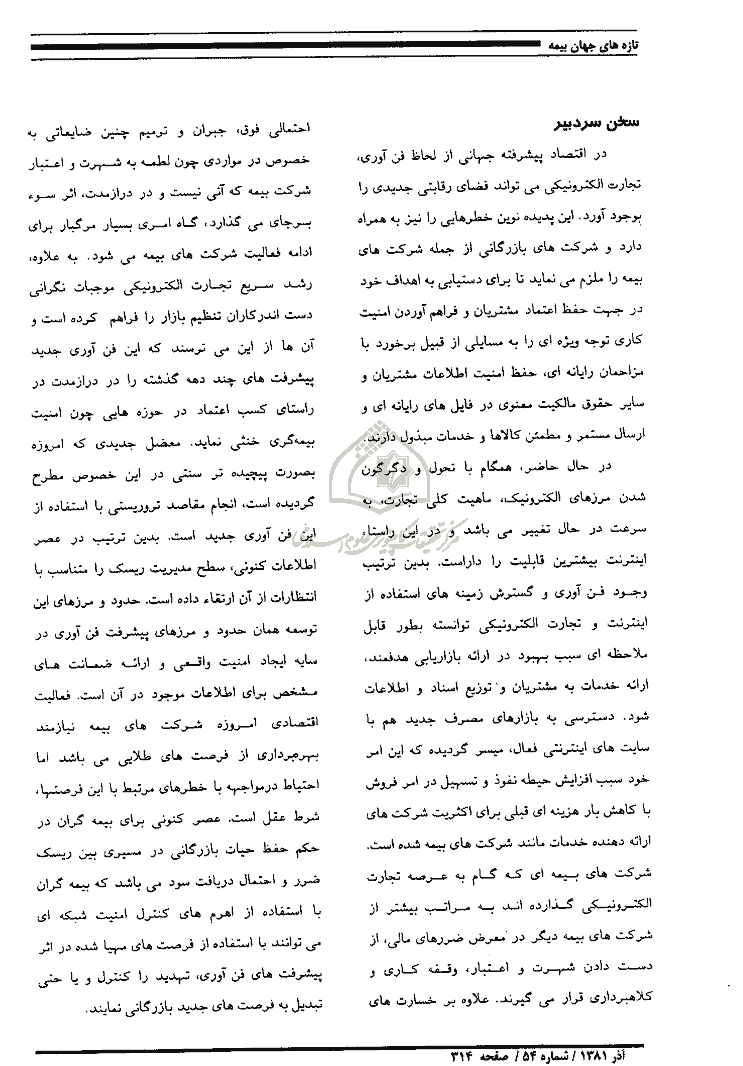 تازه های جهان بیمه
سخن سردبیر
در اقتصاد پیشرفته جهانی از لحاظ فن آوری،
تجارت الکترونیکی می تواند فضای رقابتی جدیدی را
بوجود آورد. این پدیده نوین خطرهایی را نیز به همراه
دارد و شرکت های بازرگانی از جمله شرکت های
بیمه را ملزم می نماید تا برای دستیابی به اهداف خود
در جهت حفظ اعتماد مشتریان و فراهم آوردن امنیت
کاری توجه ویژه ای را به مسایلی از قبیل برخورد با
مزاحمان رایانه ای، حفظ امنیت اطلاعات مشتریان و
سایر حقوق مالکیت معنوی در فایل های رایانه ای و
ارسال مستمر و مطمئن کالاها و خدمات مبذول دارند.
در حال حاضر، همگام با تحول و دگرگون
شدن مرزهای الکترونیک، ماهیت کلی تجارت، به
سرعت در حال تغییر می باشد و در این راستا،
اینترنت بیشترین قابلیت را داراست. بدین ترتیب
وجود فن آوری و گسترش زمینه های استفاده از
اینترنت و تجارت الکترونیکی توانسته بطور قابل
ملاحظه ای سبب بهبود در ارائه بازاریابی هدفمند،
ارائه خدمات به مشتریان و توزیع اسناد و اطلاعات
شود. دسترسی به بازارهای مصرف جدید هم با
سایت های اینترنتی فعال، میسر گردیده که این امر
خود سبب افزایش حیطه نفوذ و تسهیل در امر فروش
با کاهش بار هزینه ای قبلی برای اکثریت شرکت های
ارائه دهنده خدمات مانند شرکت های بیمه شده است.
شرکت های بیمه ای که گام به عرصه تجارت
الکترونیکی گذارده اند به مراتب بیشتر از
شرکت های بیمه دیگر در معرض ضررهای مالی، از
دست دادن شهرت و اعتبار، وقفه کاری و
کلاهبرداری قرار می گیرند. علاوه بر خسارت های
احتمالی فوق، جبران و ترمیم چنین ضایعاتی به
خصوص در مواردی چون لطمه به شهرت و اعتبار
شرکت بیمه که آنی نیست و در درازمدت، اثر سوء
برجای می گذارد، گاه امری بسیار مرگبار برای
ادامه فعالیت شرکت های بیمه می شود. به علاوه،
رشد سریع تجارت الکترونیکی موجبات نگرانی
دست اندرکاران تنظیم بازار را فراهم کرده است و
آن ها از این می ترسند که این فن آوری جدید
پیشرفت های چند دهه گذشته را در درازمدت در
راستای کسب اعتماد در حوزه هایی چون امنیت
بیمه‌گری خنثی نماید. معضل جدیدی که امروزه
بصورت پیچیده تر سنتی در این خصوص مطرح
گردیده است، انجام مقاصد تروریستی با استفاده از
این فن آوری جدید است. بدین ترتیب در عصر
اطلاعات کنونی، سطح مدیریت ریسک را متناسب با
انتظارات از آن ارتقاء داده است. حدود و مرزهای این
توسعه همان حدود و مرزهای پیشرفت فن آوری در
سایه ایجاد امنیت واقعی و ارائه ضمانت های
مشخص برای اطلاعات موجود در آن است. فعالیت
اقتصادی امروزه شرکت های بیمه نیازمند
بهره‌برداری از فرصت های طلایی می باشد اما
احتیاط درمواجهه با خطرهای مرتبط با این فرصتها،
شرط عقل است. عصر کنونی برای بیمه گران در
حکم حفظ حیات بازرگانی در مسیری بین ریسک
ضرر و احتمال دریافت سود می باشد که بیمه گران
با استفاده از اهرم های کنترل امنیت شبکه ای
می توانند با استفاده از فرصت های مهیا شده در اثر
پیشرفت های فن آوری، تهدید را کنترل و یا حتی
تبدیل به فرصت های جدید بازرگانی نمایند.
مرکز تحقیقات کامپیوتری علوم اسلامی
آذر ۱۳۸۱ / شماره ۵۴ / صفحه ۳۱۴